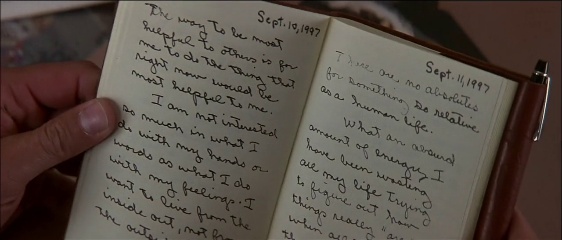 Sept. 10, 1997
The way to be most
helpful to others is for
me to do the thing that
right now would be
most helpful to me.
I am not interested
so much in what I
do with my hands or
words as what I do
with my feelings. I
want to live from the
inside out, not from
the outside
Sept. 11, 1997
There are no absolutes
for something so relative
as a human life.
What an absurd
amount of energy I
have been wasting
all my life trying
to figure out how
things really "are"
when